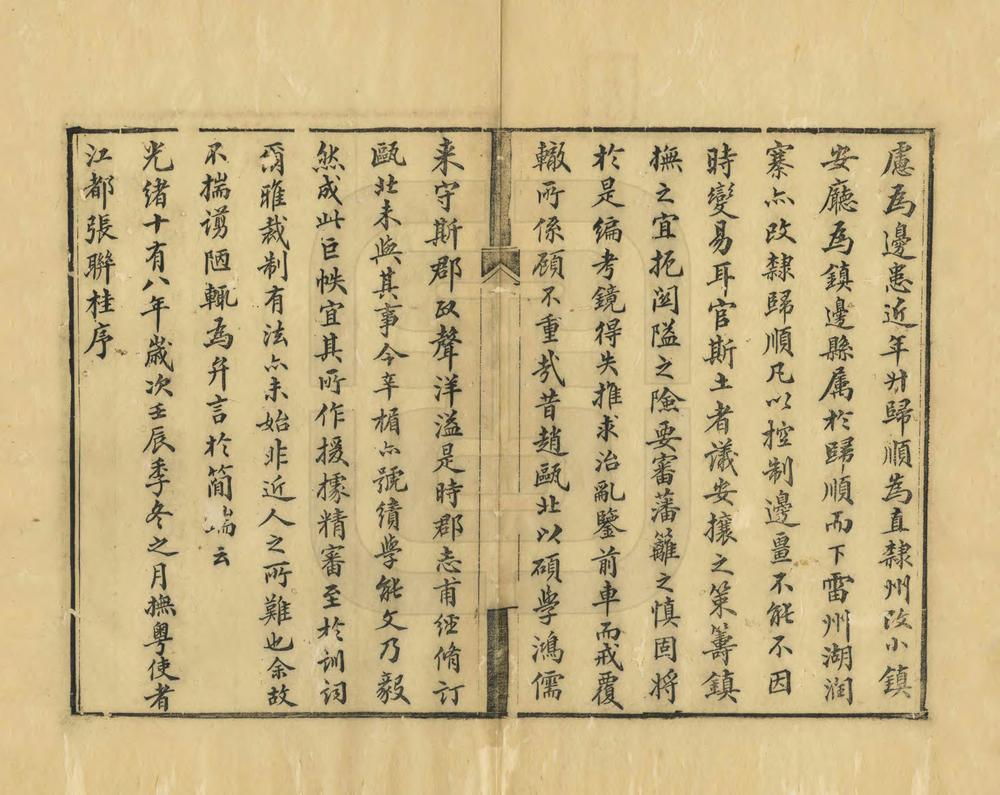 慮為邊患近年升歸順為直隸州改小鎮
安廳為鎮邊縣屬於歸順而下雷州湖潤
寨亦改隸歸順凡以控制邊疆不能不因
時變易耳官斯土者議安攘之策籌鎮
撫之宜扼關隘之險要審藩籬之慎固將
於是編考鏡得失推求治亂鑒前車而戒覆
轍所係顧不重哉昔趙甌北以碩學鴻儒
来守斯郡政聲洋溢是時郡志甫經脩訂
甌北未與其事今辛楣亦號績學能文乃毅
然成此巨帙宜其所作援據精審至於訓詞
爾雅裁制有法亦未始非近人之所難也余故
不揣謭陋輒為弁言於簡端云
光緒十有八年歲次壬辰季冬之月撫粵使者
江都張聯桂序